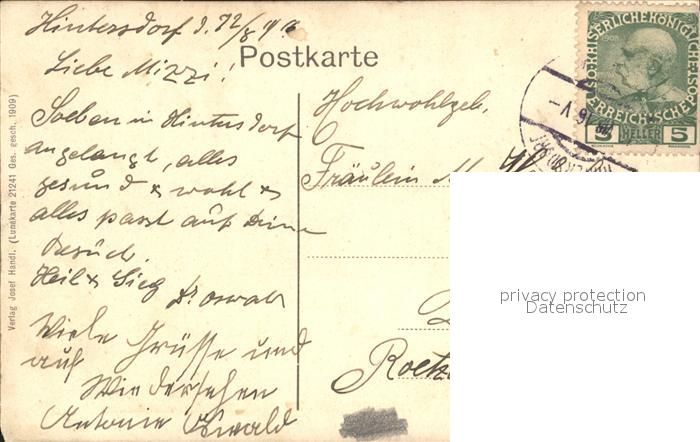 Hintersdorf d. 12/8 1910
Postkarte
Liebe Mizzi!
Soeben in Hintersdorf
angelangt, alles
gesund & wohl &
alles passt auf Deine
Besuch.
Heil & Sieg Dr Oswald
Viele Grüsse und
auf
Wiedersehen
Antonie Oswald
Hochwohlgeb.
Fräulein M
Roetz
Verlag Josef Handl. (Lunakarte 21241 Ges. gesch. 1909)
KAISERLICHE KÖNIGLICHE
1908
ÖSTERREICHISCHE
5 HELLER 5
privacy protection
Datenschutz